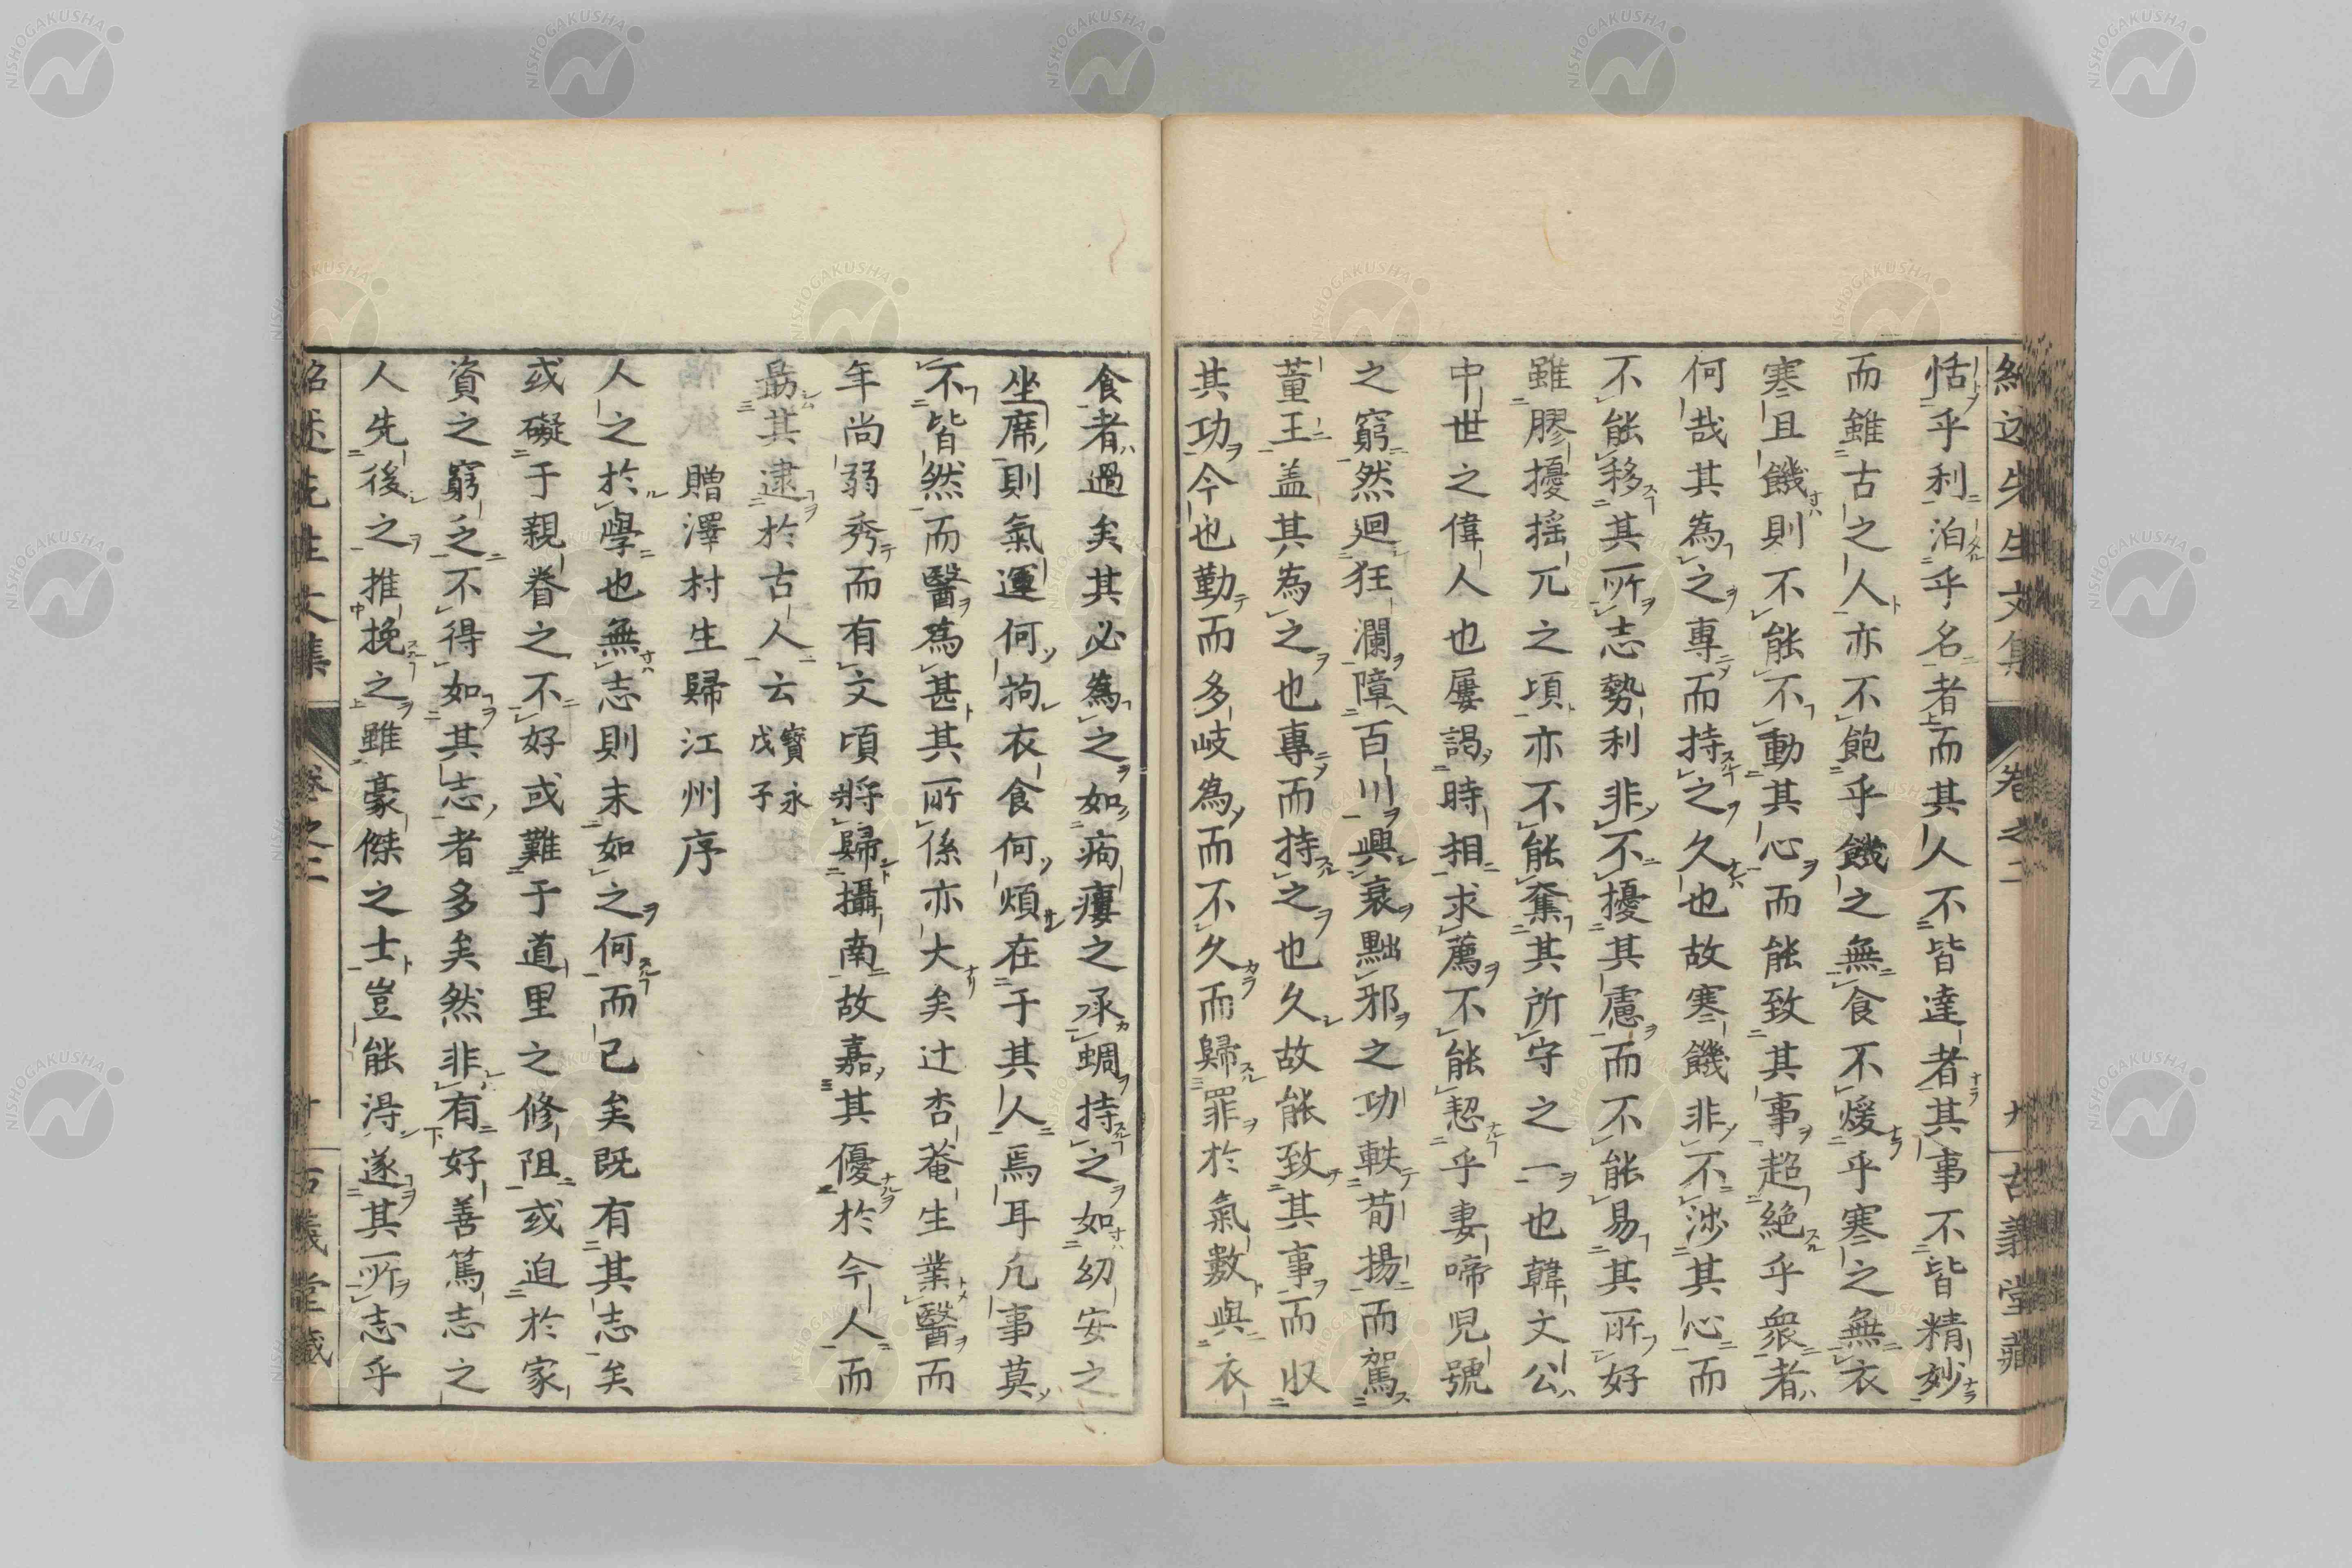 紹述先生文集 卷之二 九 古義堂藏
恬乎利泊乎名者而其人不皆達者其事不皆精妙
而雖古之人亦不飽乎饑之無食不煖乎寒之無衣
寒且饑則不能不動其心而能致其事超絶乎衆者
何哉其為之專而持之久也故寒饑非不渉其心而
不能移其所志勢利非不擾其慮而不能易其所好
雖膠擾揺兀之頃亦不能奪其所守之一也韓文公
中世之偉人也屢謁時相求薦不能恝乎妻啼兒號
之窮然迴狂瀾障百川興衰黜邪之功軼荀揚而駕
董王盖其為之也專而持之也久故能致其事而収
其功今也勤而多岐為而不久而歸罪於氣數與衣
食者過矣其必為之如痀瘻之承蜩持之如幼安之
坐席則氣運何拘衣食何煩在于其人焉耳凢事莫
不皆然而醫為甚其所係亦大矣辻杏菴生業醫而
年尚弱秀而有文頃將歸攝南故嘉其優於今人而
勗其逮於古人云 寶永戊子
贈澤村生歸江州序
人之於學也無志則末如之何而已矣既有其志矣
或礙于親眷之不好或難于道里之修阻或迫於家
資之窮乏不得如其志者多矣然非有好善篤志之
人先後之推挽之雖豪傑之士豈能得遂其所志乎
紹述先生文集 卷之二 十 古義堂藏
NISHOGAKUSHA